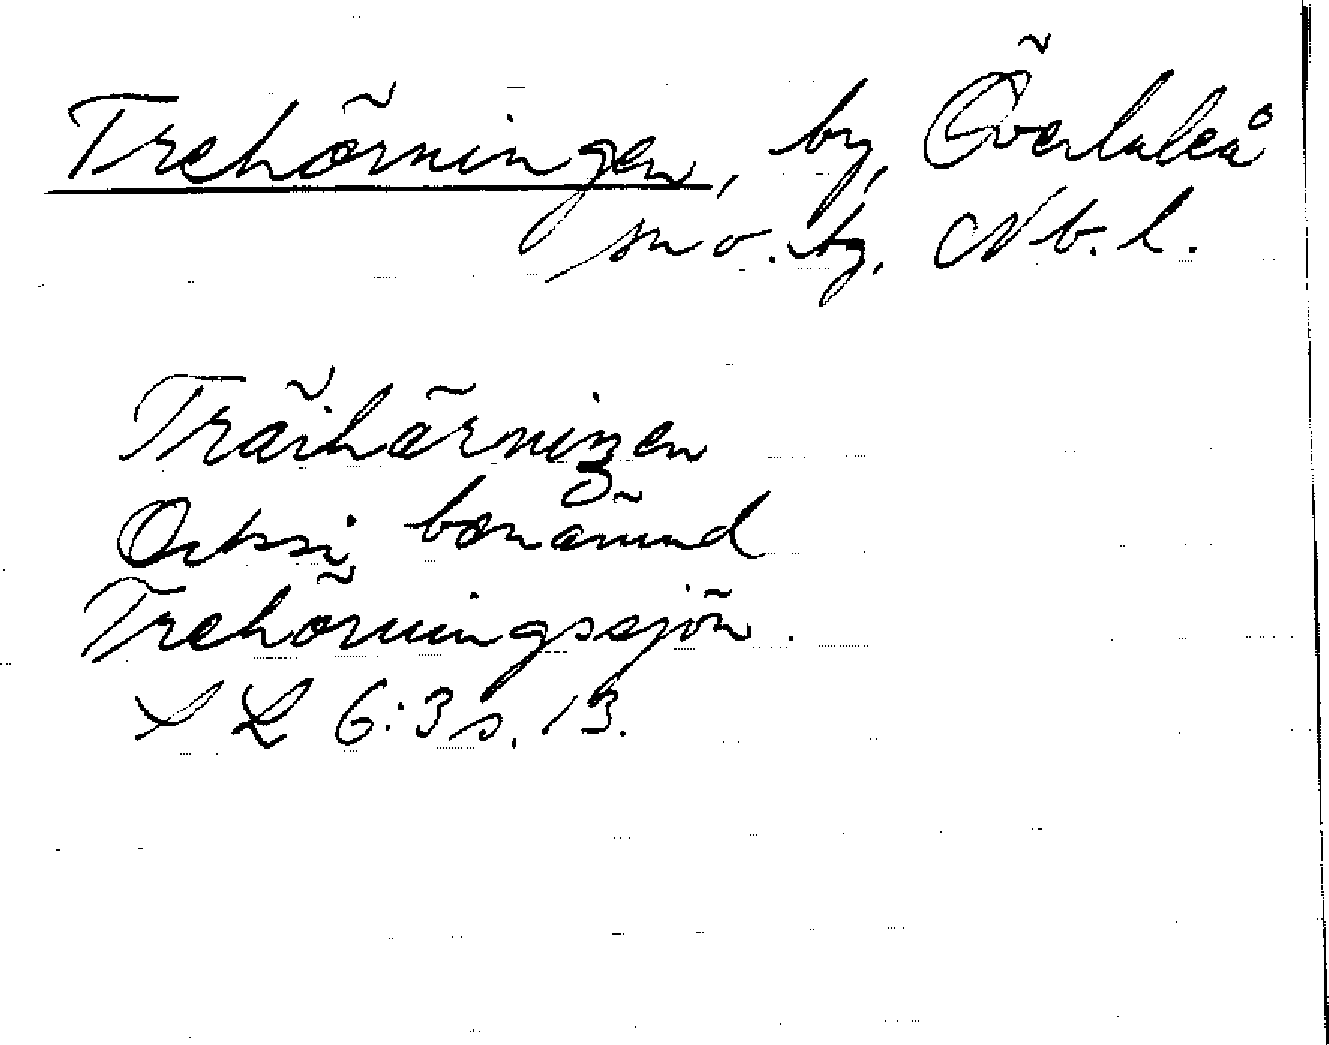 Trehörningen, by, Överluleå
sn o. tg, Nb. l.
Träihärniŋen
Också benämnd
Trehörningssjön.
SL 6:3 s. 13.